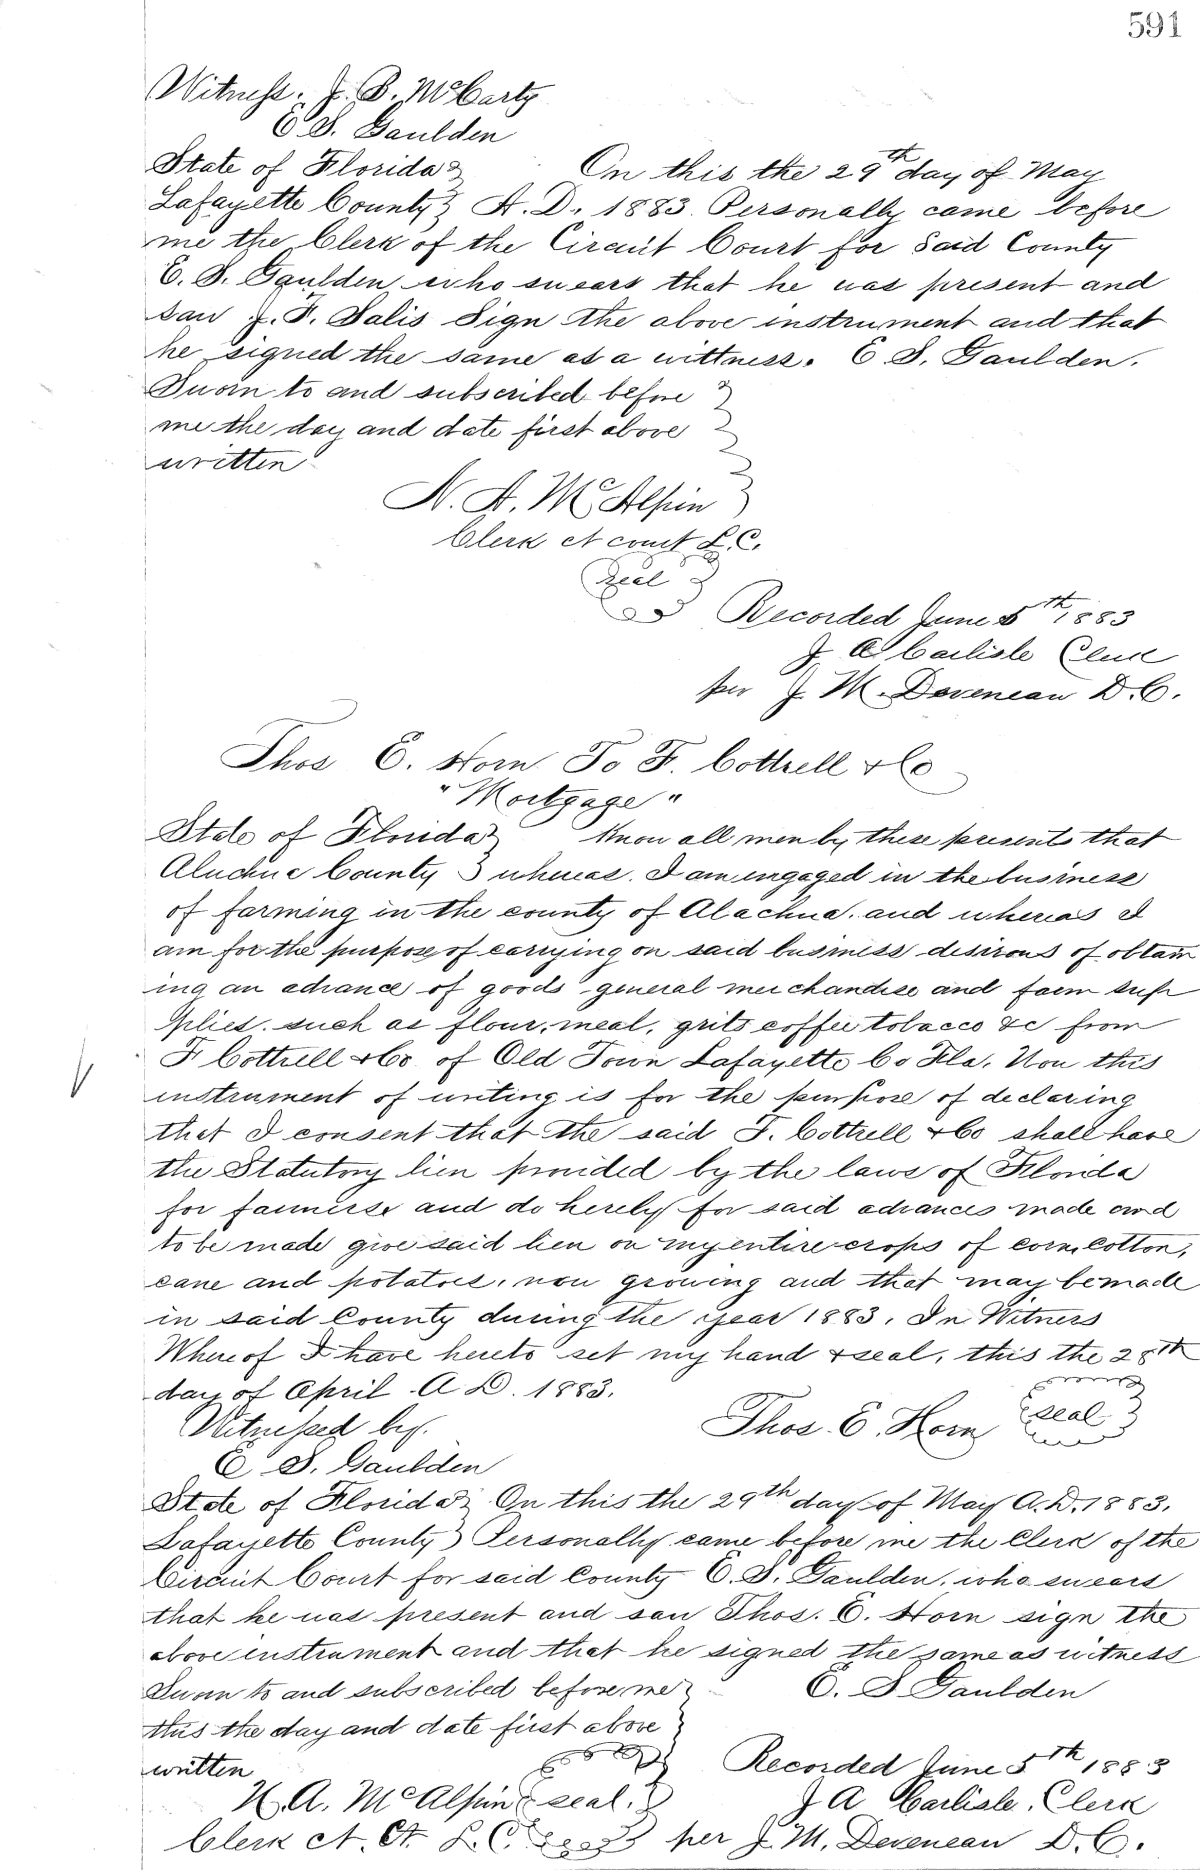 591
Witness. J. B. McCarty
E. S. Gaulden
State of Florida } On this the 29th day of May
Lafayette County } A. D. 1883 Personally came before
me the Clerk of the Circuit Court for said County
E. S. Gaulden who swears that he was present and
saw J. F. Salis Sign the above instrument and that
he signed the same as a wittness. E S. Gaulden.
Sworn to and subscribed before }
me the day and date first above
written
N. A. McAlpin
Clerk ct court L. C.
seal
Recorded June 5th 1883
J A Carlisle Clerk
per J. M. Deveneau D. C.
Thos E. Horn To F. Cottrell & Co
"Mortgage"
State of Florida } Know all men by these presents that
Aluchuc County } whereas. I am engaged in the business
of farming in the county of Alachua. and whereas I
am for the purpose of carrying on said business desirous of obtain
ing an advance of goods general merchandise and farm sup
plies. such as flour, meal, grits coffee tobacco &c from
F Cottrell & Co of Old Town Lafayette Co Fla. Now this
instrument of writing is for the purpose of declaring
that I consent that the said F. Cottrell & Co shall have
the Statutory lien provided by the laws of Florida
for farmers and do hereby for said advances made and
to be made give said lien on my entire crops of corn, cotton,
cane and potatoes, now growing and that may be made
in said County during the year 1883. In Witness
Whereof I have hereto set my hand & seal, this the 28th
day of April A D. 1883.
Witnessed by. Thos. E. Horn seal
E S. Gaulden
State of Florida } On this the 29th day of May A. D. 1883.
Lafayette County } Personally came before me the Clerk of the
Circuit Court for said County E. S. Gaulden, who swears
that he was present and saw Thos. E. Horn sign the
above instrument and that he signed the same as witness
Sworn to and subscribed before me } E. S Gaulden
this the day and date first above
written Recorded June 5th 1883
N. A. McAlpin seal. J A Carlisle. Clerk
Clerk Ct. Ct. L. C. per J. M. Deveneau D. C.